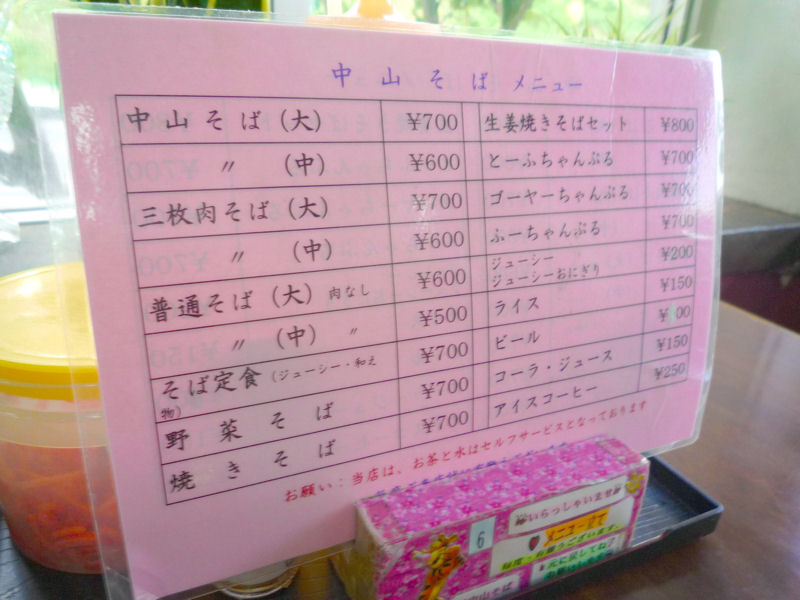 中山そば メニュー
中山そば(大) ¥700
〃 (中) ¥600
三枚肉そば(大) ¥700
〃 (中) ¥600
普通そば(大) 肉なし ¥600
〃 (中) 〃 ¥500
そば定食(ジューシー・和え
物) ¥700
野菜そば ¥700
焼きそば ¥700
生姜焼きそばセット ¥800
とーふちゃんぷる ¥700
ゴーヤーちゃんぷる ¥700
ふーちゃんぷる ¥700
ジューシー
ジューシーおにぎり ¥200
ライス ¥150
ビール
コーラ・ジュース ¥150
アイスコーヒー ¥250
お願い:当店は、お茶と水はセルフサービスとなっております
いらっしゃいませ
メニュー立て
毎度有難うございます。
元に戻してね
6
中山そば